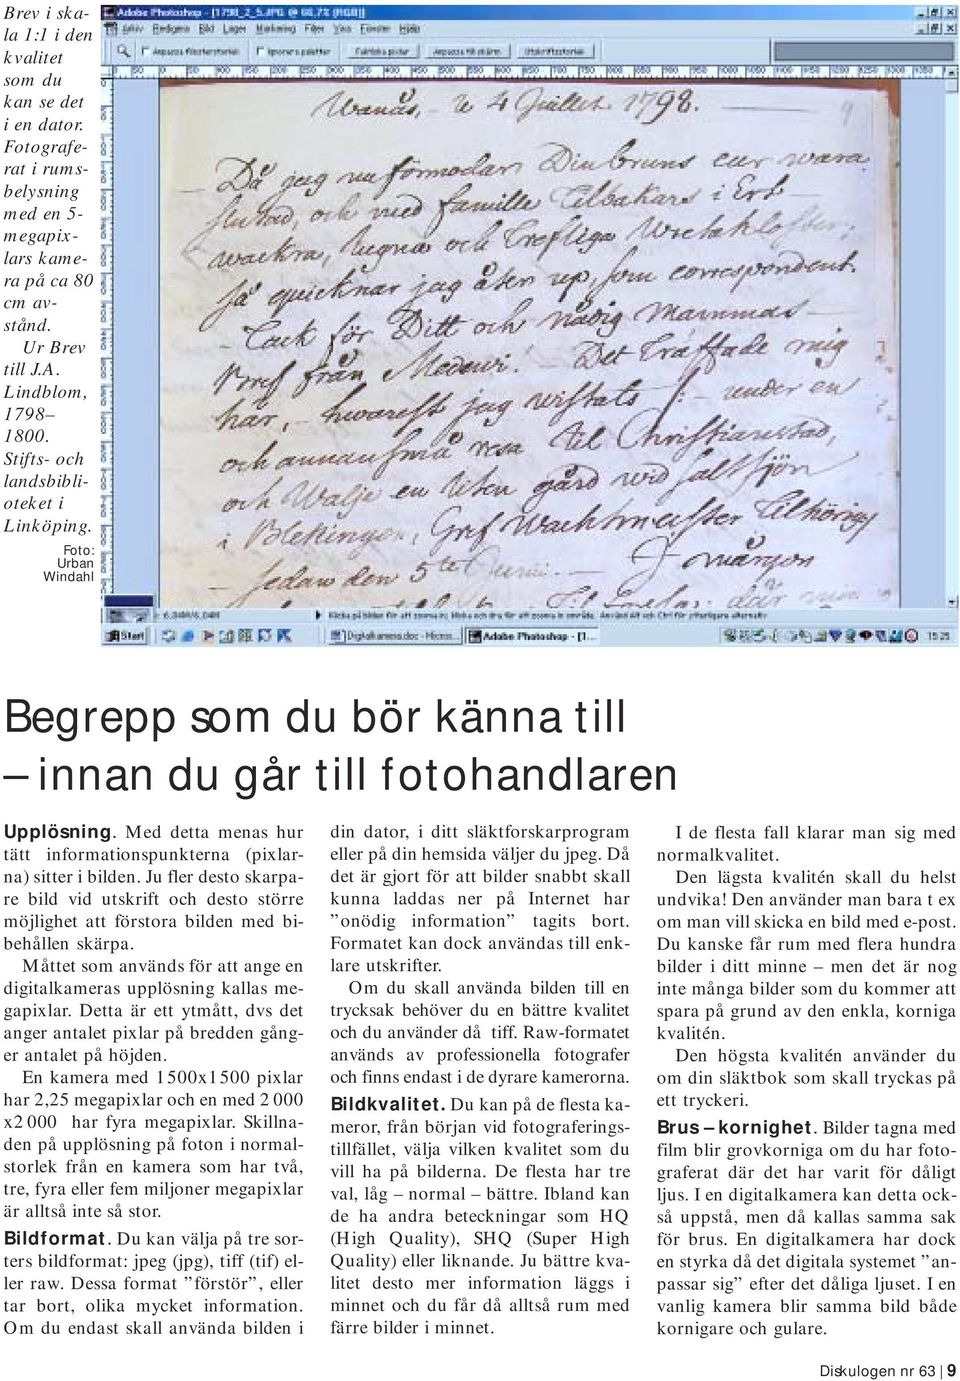 Brev i ska-
la 1:1 i den
kvalitet
som du
kan se det
i en dator.
Fotografe-
rat i rums-
belysning
med en 5-
megapix-
lars kame-
ra på ca 80
cm av-
stånd.
Ur Brev
till J.A.
Lindblom,
1798–
1800.
Stifts- och
landsbibli-
oteket i
Linköping.
Foto:
Urban
Windahl
Adobe Photoshop - [1798_2_5.JPG @ 66,7% (RGB)]
Arkiv Redigera Bild Lager Markering Filter Visa Fönster Hjälp
Anpassa fönsterstorlek Ignorera paletter Faktiska pixlar Anpassa till skärm Utskriftsstorlek
Wanås, 4 Juillet 1798. 9
Då jag nu förmodar Din bruns cuer wara
slutad, och med famille Tilbakars i Ert
wackra, lugna och Trefliga Wretakloster,
Så quicknar jag åter up, som correspondent.
Tack för Ditt och nådig Mammas
Bref från Medewi! Det Träffade mig
här, hwarest jag wistats /: under en
och annan små resa til Christianstad,
och Walje en liten gård wid saltsjön
i Blekingen, Gref Wachtmeister Tilhörig
sedan den 5te Juni. I mårgon
Klicka på bilden för att zooma in; klicka och dra för att zooma in område. Använd Alt och Ctrl för ytterligare alternativ
Start Digitalkamera.doc - Micros... Adobe Photoshop - [1... 15:25
Begrepp som du bör känna till
– innan du går till fotohandlaren
Upplösning. Med detta menas hur
tätt informationspunkterna (pixlar-
na) sitter i bilden. Ju fler desto skarpa-
re bild vid utskrift och desto större
möjlighet att förstora bilden med bi-
behållen skärpa.
Måttet som används för att ange en
digitalkameras upplösning kallas me-
gapixlar. Detta är ett ytmått, dvs det
anger antalet pixlar på bredden gång-
er antalet på höjden.
En kamera med 1500x1500 pixlar
har 2,25 megapixlar och en med 2 000
x2 000 har fyra megapixlar. Skillna-
den på upplösning på foton i normal-
storlek från en kamera som har två,
tre, fyra eller fem miljoner megapixlar
är alltså inte så stor.
Bildformat. Du kan välja på tre sor-
ters bildformat: jpeg (jpg), tiff (tif) el-
ler raw. Dessa format ”förstör”, eller
tar bort, olika mycket information.
Om du endast skall använda bilden i
din dator, i ditt släktforskarprogram
eller på din hemsida väljer du jpeg. Då
det är gjort för att bilder snabbt skall
kunna laddas ner på Internet har
”onödig information” tagits bort.
Formatet kan dock användas till enk-
lare utskrifter.
Om du skall använda bilden till en
trycksak behöver du en bättre kvalitet
och du använder då tiff. Raw-formatet
används av professionella fotografer
och finns endast i de dyrare kamerorna.
Bildkvalitet. Du kan på de flesta ka-
meror, från början vid fotograferings-
tillfället, välja vilken kvalitet som du
vill ha på bilderna. De flesta har tre
val, låg – normal – bättre. Ibland kan
de ha andra beteckningar som HQ
(High Quality), SHQ (Super High
Quality) eller liknande. Ju bättre kva-
litet desto mer information läggs i
minnet och du får då alltså rum med
färre bilder i minnet.
I de flesta fall klarar man sig med
normalkvalitet.
Den lägsta kvalitén skall du helst
undvika! Den använder man bara t ex
om man vill skicka en bild med e-post.
Du kanske får rum med flera hundra
bilder i ditt minne – men det är nog
inte många bilder som du kommer att
spara på grund av den enkla, korniga
kvalitén.
Den högsta kvalitén använder du
om din släktbok som skall tryckas på
ett tryckeri.
Brus – kornighet. Bilder tagna med
film blir grovkorniga om du har foto-
graferat där det har varit för dåligt
ljus. I en digitalkamera kan detta ock-
så uppstå, men då kallas samma sak
för brus. En digitalkamera har dock
en styrka då det digitala systemet ”an-
passar sig” efter det dåliga ljuset. I en
vanlig kamera blir samma bild både
kornigare och gulare.
Diskulogen nr 63 | 9